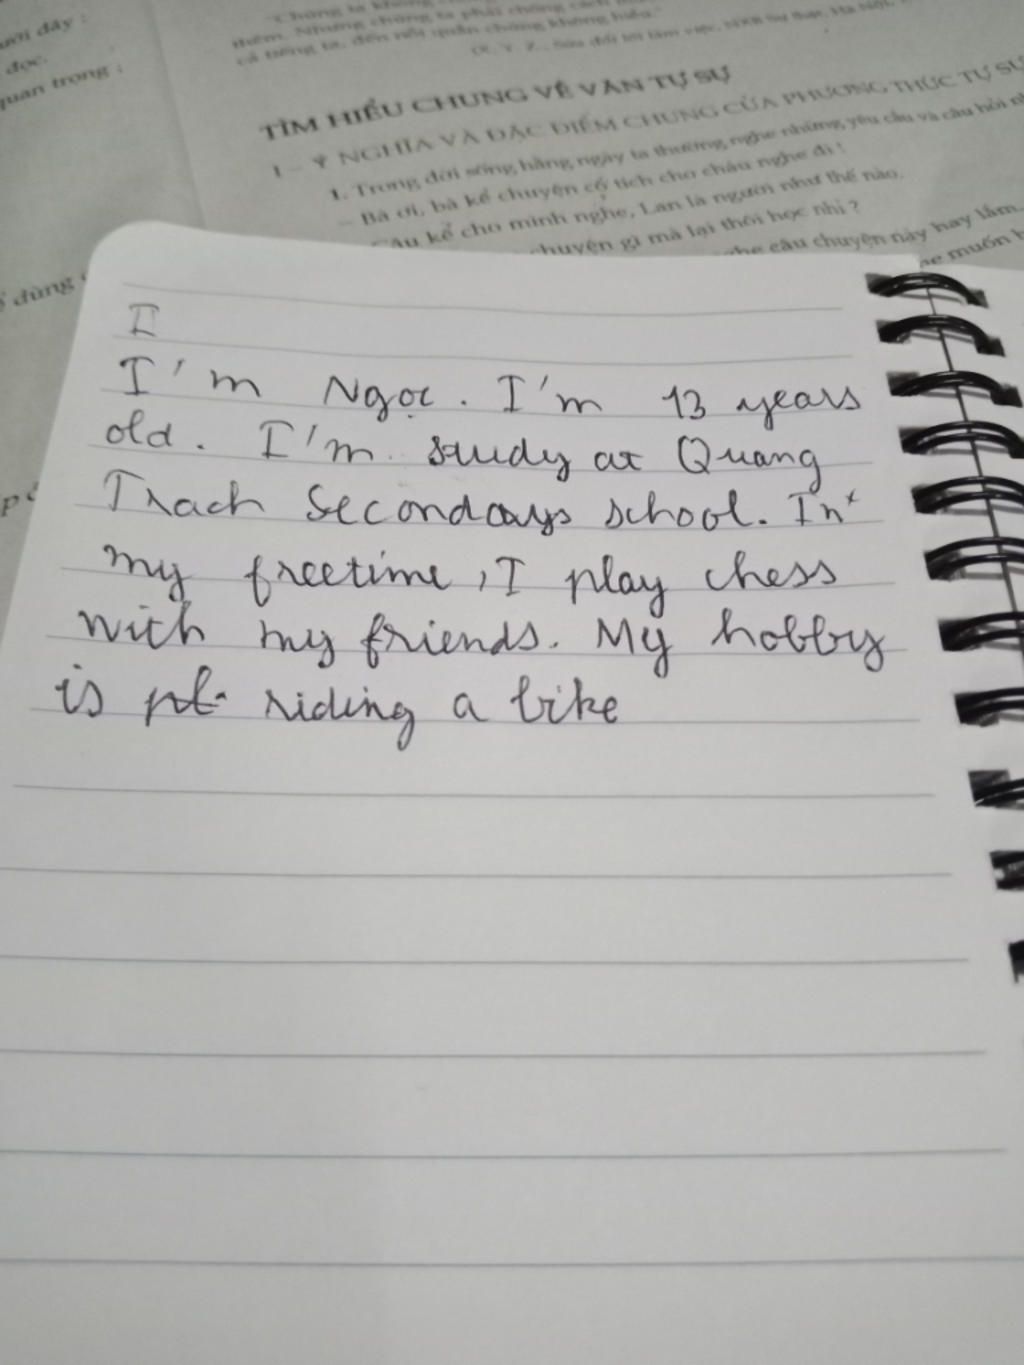 ười đây :
đọc.
quan trọng :
"Chúng ta không
thêm. Nhưng chúng ta phải chống cách
cả tiếng ta, đến nỗi quần chúng không hiểu."
TÌM HIỂU CHUNG VỀ VĂN TỰ SỰ
I – Ý NGHĨA VÀ ĐẶC ĐIỂM CHUNG CỦA PHƯƠNG THỨC TỰ SỰ
1. Trong đời sống hằng ngày ta thường nghe những yêu cầu và câu hỏi
– Bà ơi, bà kể chuyện cổ tích cho cháu nghe đi !
Cậu kể cho mình nghe, Lan là người như thế nào.
chuyện gì mà lại thôi học nhỉ ?
nghe câu chuyện này hay lắm.
muốn
dùng
I
I'm Ngọc. I'm 13 years
old. I'm study at Quang
Trach Secondays school. In
my freetime, I play chess
with my friends. My hobby
is riding a bike